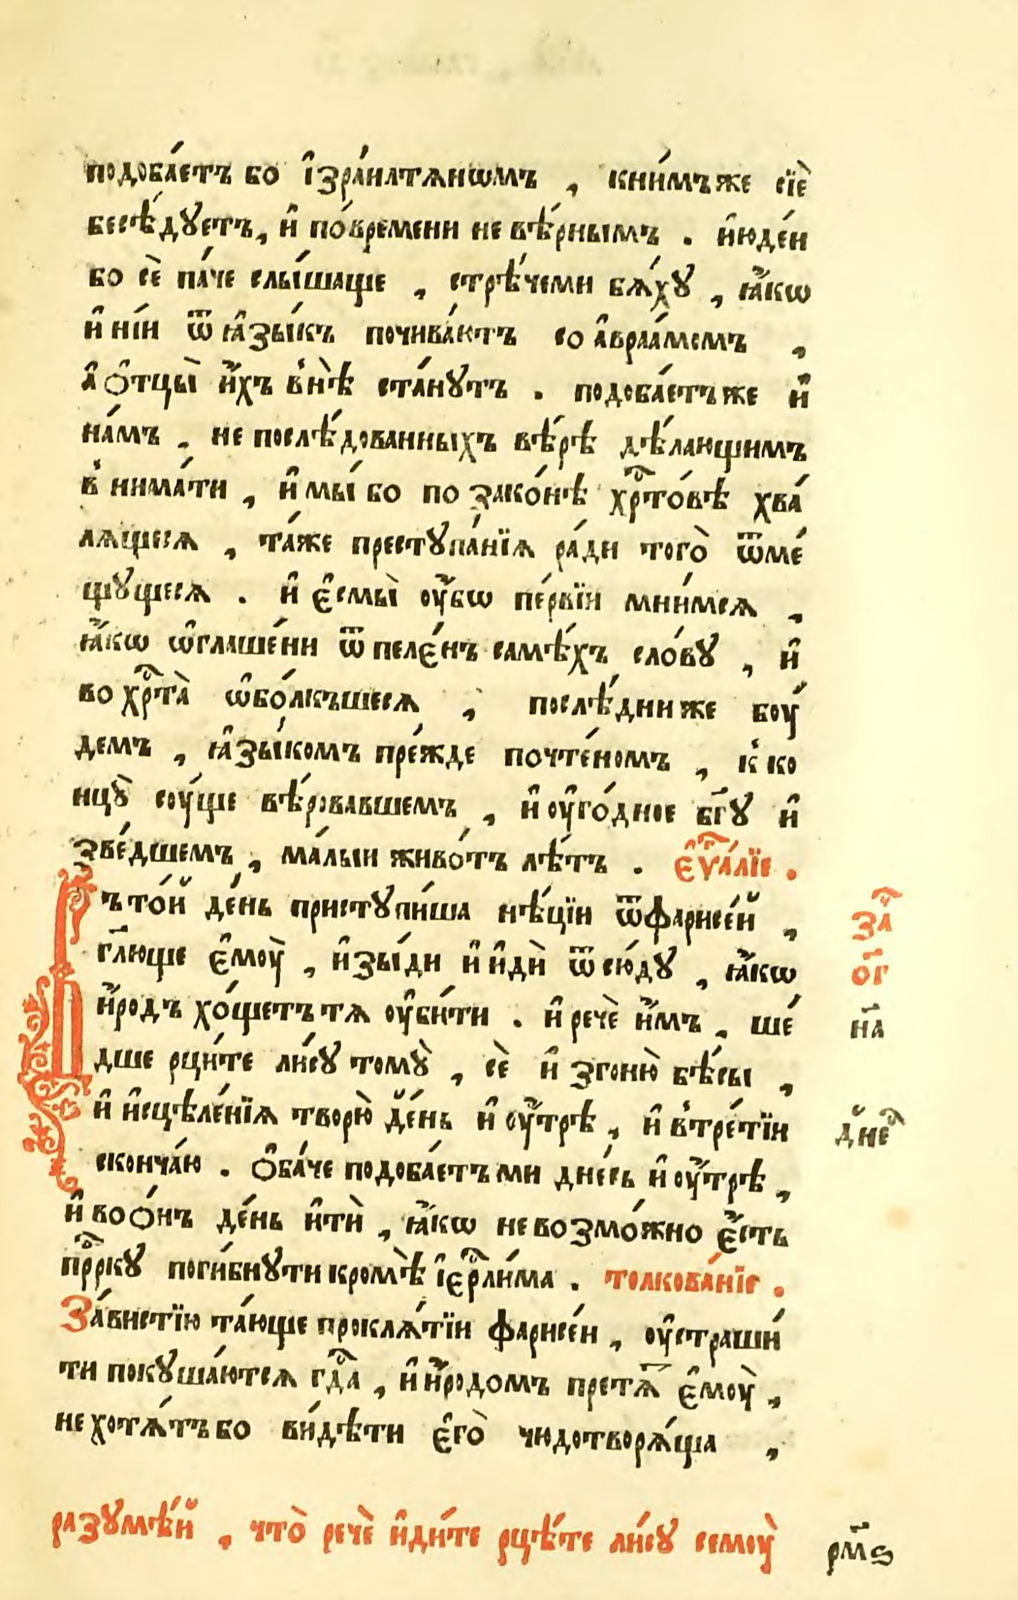 подоба́етъ бо і҆зра́илтяномъ , кни́мъже сїѐ
бесѣ́дуетъ, и҆ по́времени невѣ́рнымъ . и҆юде́и
бо сѐ па́че слы́шаще , стрѣ́чеми бѧ́ху , ꙗ҆́кѡ
и҆ ні́и ѿ ꙗ҆зы́къ почива́ютъ со а҆враа́момъ ,
а҆ ѻ҆тцы̀ и҆́хъ внѣ̀ ста́нутъ . подоба́етъже и҆
на́мъ , не послѣ́дованныхъ вѣ́рѣ дѣ́лающимъ
внима́ти , и҆ мы́ бо по зако́нѣ хрⷭ҇то́вѣ хва́
лѧщесѧ , та́же преступа́нїѧ ра́ди того̀ ѿме́
щущесѧ . и҆ є҆смы̀ ᲂу҆́бѡ пе́рвїи мни́мсѧ ,
ꙗ҆́кѡ ѡ҆глаше́ни ѿ пеле́нъ самѣ́хъ сло́ву , и҆
во хрⷭ҇та̀ ѡ҆бо́лкъшесѧ , послѣ́дниже бᲂу́
демъ , ꙗ҆зы́комъ пре́жде почте́номъ , к ко
нцу̀ сᲂу́ще вѣ́ровавшемъ , и҆ ᲂу҆го́дное бг҃у и҆
зве́дшемъ , ма́лыи живо́тъ лѣ́тъ . є҆ѵⷢ҇а́лїе .
Въ то́й де́нь приступи́ша нѣ́цїи ѿфарисе́й ,
гл҃юще є҆мᲂу̀ , и҆зы́ди и҆ и҆дѝ ѿсю́ду , ꙗ҆́кѡ
и҆́родъ хо́щетъ тѧ ᲂу҆би́ти . и҆ речѐ и҆̀мъ , ше́
дше рцы́те ли́су тому̀ , сѐ и҆ згоню̀ бѣ́сы ,
и҆ и҆сцѣле́нїѧ творю̀ дн҃ень и҆ ᲂу҆́трѣ , и҆ втре́тїи
сконча́ю . ѻ҆ба́че подоба́етъ ми дне́сь и҆ ᲂу҆́трѣ ,
и҆ во ѻ҆́нъ де́нь и҆тѝ , ꙗ҆́кѡ невозмо́жно є҆́сть
прⷪ҇рку поги́бнути кромѣ̀ і҆єрⷭ҇ли́ма . толкова́нїе .
За́вистїю та́юще проклѧ́тїи фарисе́и , ᲂу҆страши́
ти покуша́ютсѧ гдⷭ҇а , и҆ и҆́родомъ претѧ́т є҆мᲂу̀ ,
не хотѧ́тъ бо ви́дѣти є҆го̀ чюдотворѧ́ща ,
разумѣ́й , что̀ речѐ и҆ди́те рцѣ́те ли́су семᲂу̀
за҃
ѻ҃г
н҃а
рм҃ѕ